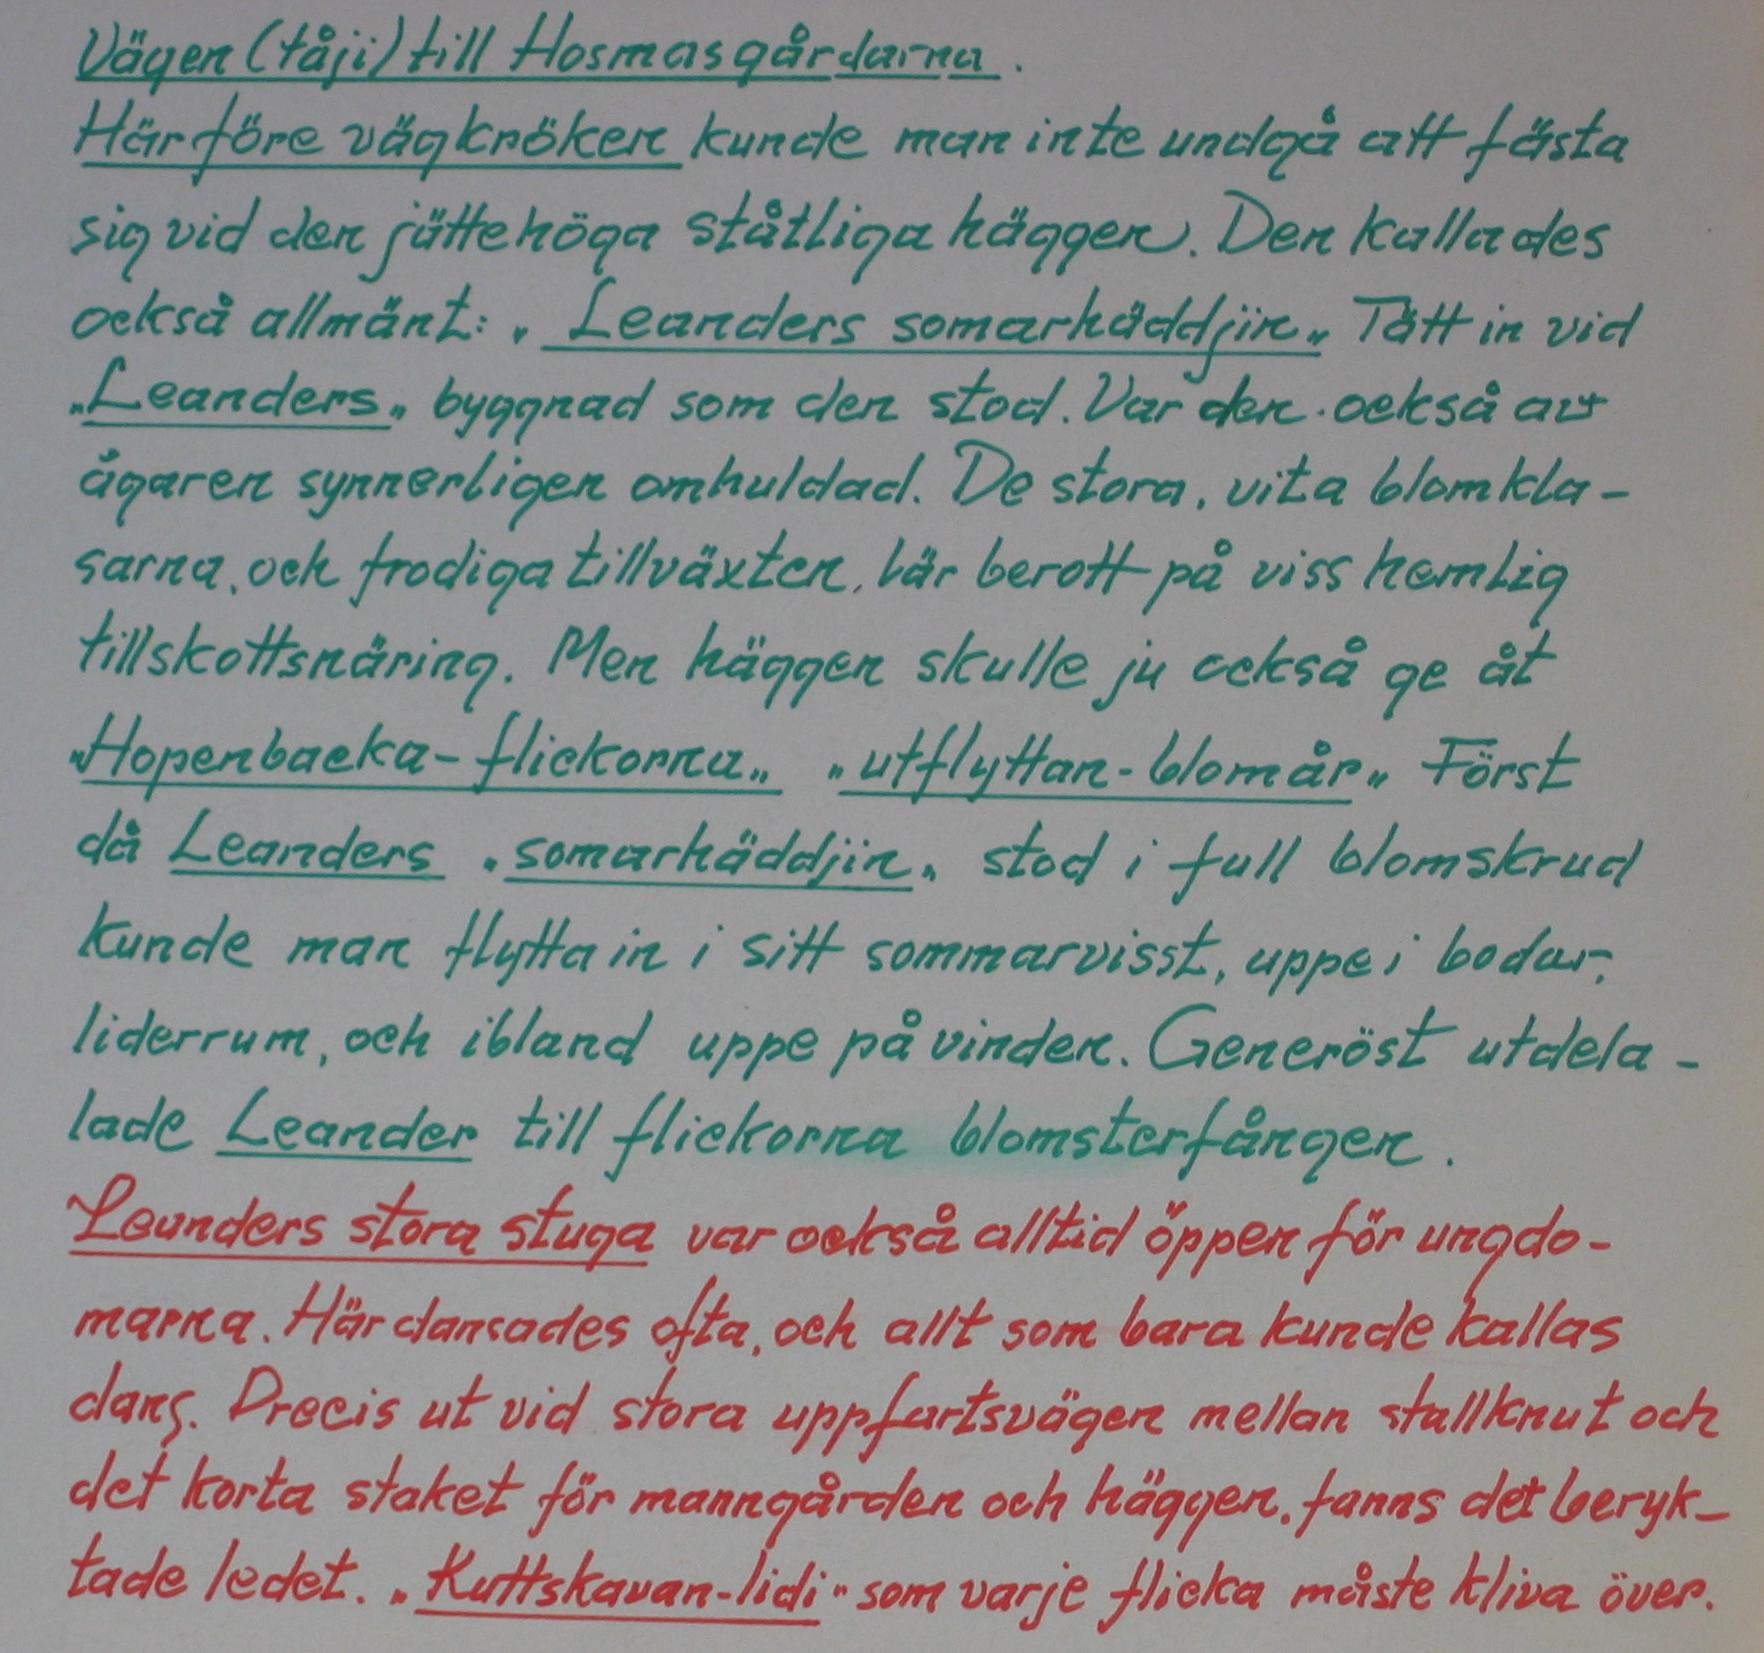 Vägen (tåji) till Hosmasgårdarna.
Härföre vägkröken kunde man inte undgå att fästa
sig vid den jättehöga ståtliga häggen. Den kallades
också allmänt: "Leanders somarhäddjin" Tätt in vid
"Leanders" byggnad som den stod. Var den också av
ägaren synnerligen omhuldad. De stora, vita blomkla-
sarna, och frodiga tillväxten, lär berott på viss hemlig
tillskottsnäring. Men häggen skulle ju också ge åt
"Hopenbacka-flickorna" "utflyttan-blomår" Först
då Leanders "somarhäddjin" stod i full blomskrud
kunde man flytta in i sitt sommarvisst, uppe i bodar,
liderrum, och ibland uppe på vinden. Generöst utdela-
lade Leander till flickorna blomsterfången.
Leanders stora stuga var också alltid öppen för ungdo-
marna. Här dansades ofta, och allt som bara kunde kallas
dans. Precis ut vid stora uppfartsvägen mellan stallknut och
det korta staket för manngården och häggen, fanns det beryk-
tade ledet. "Kuttskavan-lidi" som varje flicka måste kliva över.